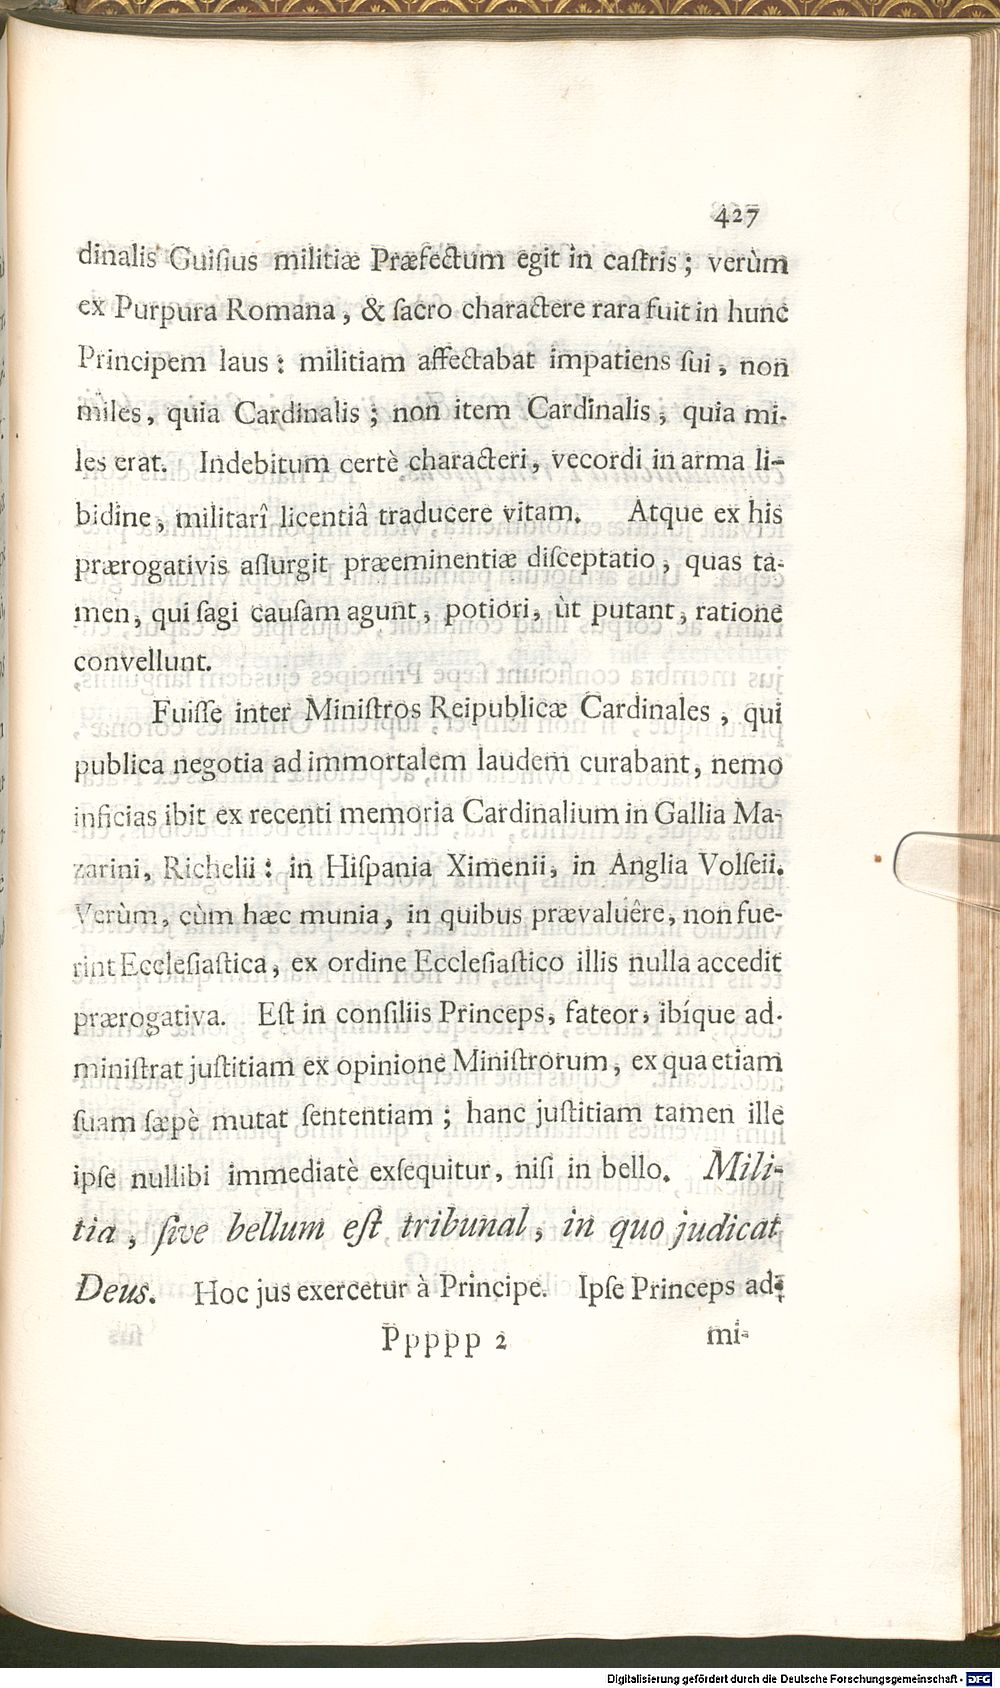 427
dinalis Guiſius militiæ Præfectum egit in caſtris; verùm
ex Purpura Romana, & ſacro charactere rara fuit in hunc
Principem laus: militiam affectabat impatiens ſui, non
miles, quia Cardinalis; non item Cardinalis, quia mi-
les erat. Indebitum certè characteri, vecordi in arma li-
bidine, militarî licentiâ traducere vitam. Atque ex his
prærogativis aſſurgit præeminentiæ diſceptatio, quas ta-
men, qui ſagi cauſam agunt, potiori, ùt putant, ratione
convellunt.
Fuiſſe inter Miniſtros Reipublicæ Cardinales, qui
publica negotia ad immortalem laudem curabant, nemo
inficias ibit ex recenti memoria Cardinalium in Gallia Ma-
zarini, Richelii: in Hiſpania Ximenii, in Anglia Volſeii.
Verùm, cùm hæc munia, in quibus prævaluêre, non fue-
rint Eccleſiaſtica, ex ordine Eccleſiaſtico illis nulla accedit
prærogativa. Eſt in conſiliis Princeps, fateor, ibíque ad-
miniſtrat juſtitiam ex opinione Miniſtrorum, ex qua etiam
ſuam ſæpè mutat ſententiam; hanc juſtitiam tamen ille
ipſe nullibi immediatè exſequitur, niſi in bello. Mili-
tia, ſive bellum eſt tribunal, in quo judicat
Deus. Hoc jus exercetur à Principe. Ipſe Princeps ad-
Ppppp 2 mi-
Digitalisierung gefördert durch die Deutsche Forschungsgemeinschaft - DFG